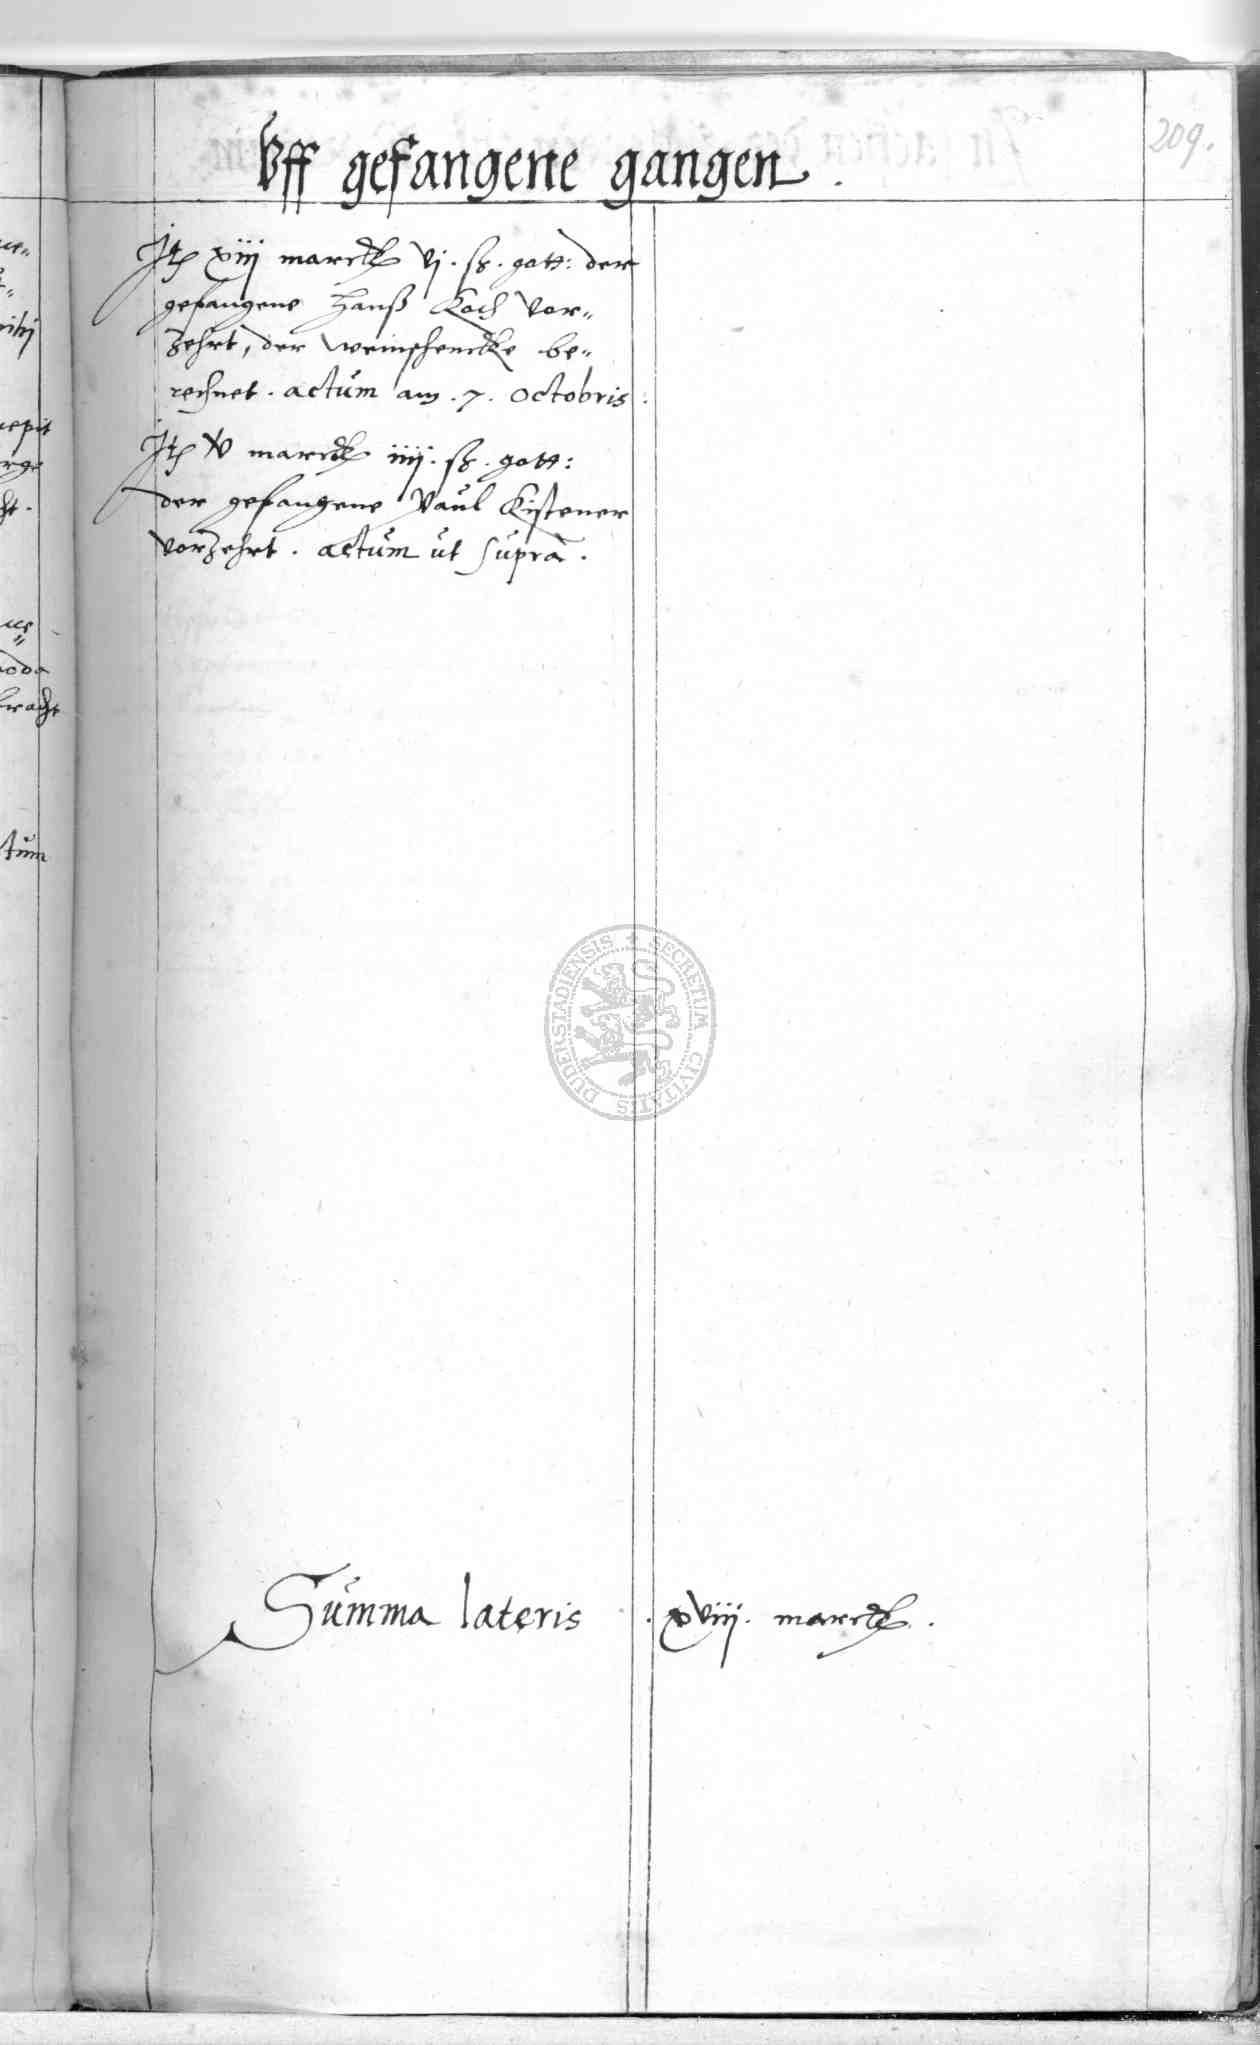 209.
Vff gefangene gangen .
Jtem xiij marck vj . ß . gott: der
gefangene Hanß Koch vor=
zehrt, der weinschencke be=
rechnet . actum am . 7 . octobris :
Jtem v marck iiij . ß . gott:
der gefangene Paul Kistener
vorzehrt . actum ut supra .
Summa lateris . xviij . marck .
SECRETUM CIVITATIS DUDERSTADIENSIS